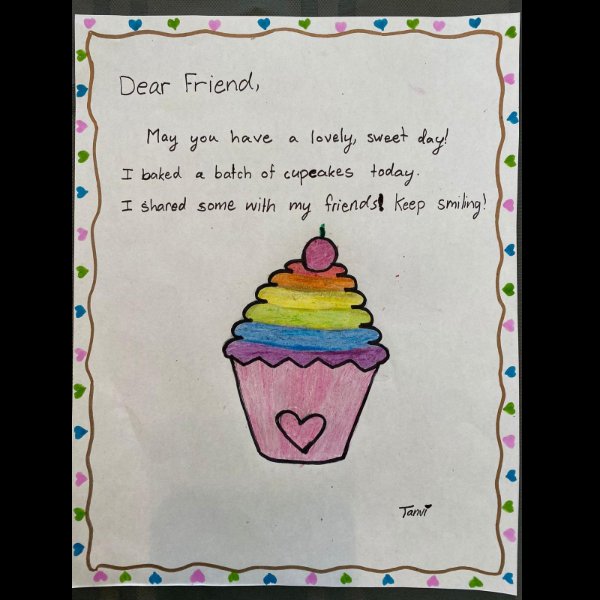 Dear Friend,
May you have a lovely, sweet day!
I baked a batch of cupcakes today.
I shared some with my friends! Keep smiling!
Tanvi